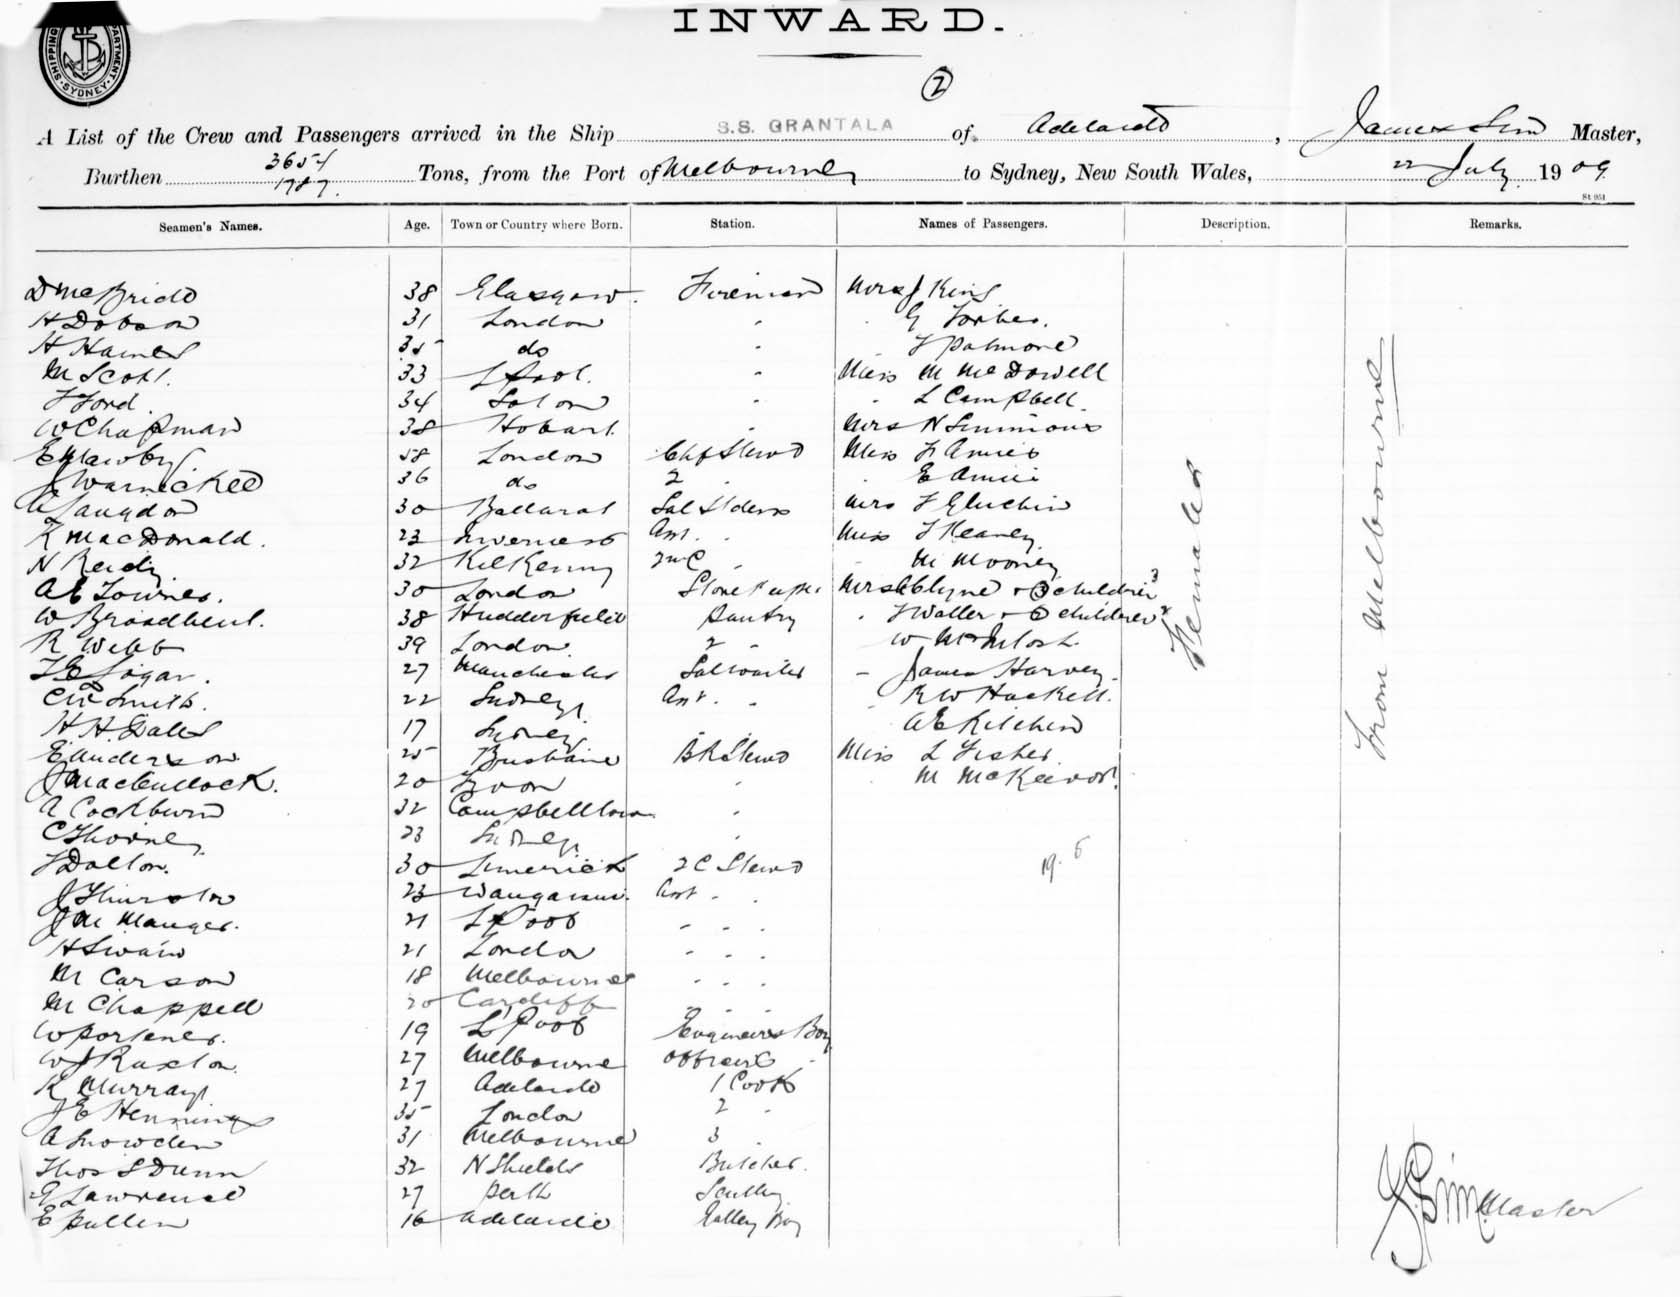 INWARD.
SHIPPING DEPARTMENT. SYDNEY.
2
A List of the Crew and Passengers arrived in the Ship S.S. GRANTALA of Adelaide, James Sim Master,
Burthen 3654 1787 Tons, from the Port of Melbourne to Sydney, New South Wales, 22 July 1909
St 951
Seamen's Names. Age. Town or Country where Born. Station. Names of Passengers. Description. Remarks.
D McBride 38 Glasgow Fireman Mrs J King
H Dobson 31 London " " G Forbes.
H Haines 35 do " " F Palmore
M Scott. 33 L Pool. " Miss M McDowell
F Ford. 34 " " L Campbell.
W Chapman 38 Hobart. " Mrs N Simmons
E Mawby. 58 London Chf Stewd Miss F Annis
J Warnecke 36 do 2 " " E
A Langdon 30 Ballarat Sal Stdess Mrs F
K MacDonald. 23 Inverness Asst. " Miss F Keaney
N Reidy 32 Kilkenny 2nd C " " M Mooney
A E Townes. 30 London Storekeeper Mrs Clyne + 3 children
W Broadbent. 38 Huddersfield Pantry " F Waller + children
R Webb 39 London. 2 " W McIntosh
T E Logan. 27 Manchester Sal waiter James Harvey
C W Smith. 22 Sydney Asst. " R W Haskell.
H H Dales 17 Sydney " " A E Kitchen
E Anderson 25 Brisbane B R Stewd Miss L Fisher
J MacCullock. 20 Troon " M McKeevor.
A Cockburn 32 Campbelltown "
C Thorne 23 Sydney "
F Dalton. 30 Limerick 2 C Stewd
J Thurston 23 Wanganui. Asst " "
J M Manger. 21 L Pool " " "
H Swain 21 London " " "
M Carson 18 Melbourne " " "
M Chappell 20 Cardiff " "
W Porteners. 19 L Pool Engineers Boy
W J Ruxton. 27 Melbourne Officers "
K Murray 27 Adelaide 1 Cook
J E Hennings 35 London 2 "
A Snowden 31 Melbourne 3 "
Thos S Dunn 32 N Shields Butcher.
G Lawrence 27 Perth Scully
E Pullen 16 Adelaide Galley Boy
19. 6
Females
From Melbourne
J Sim Master